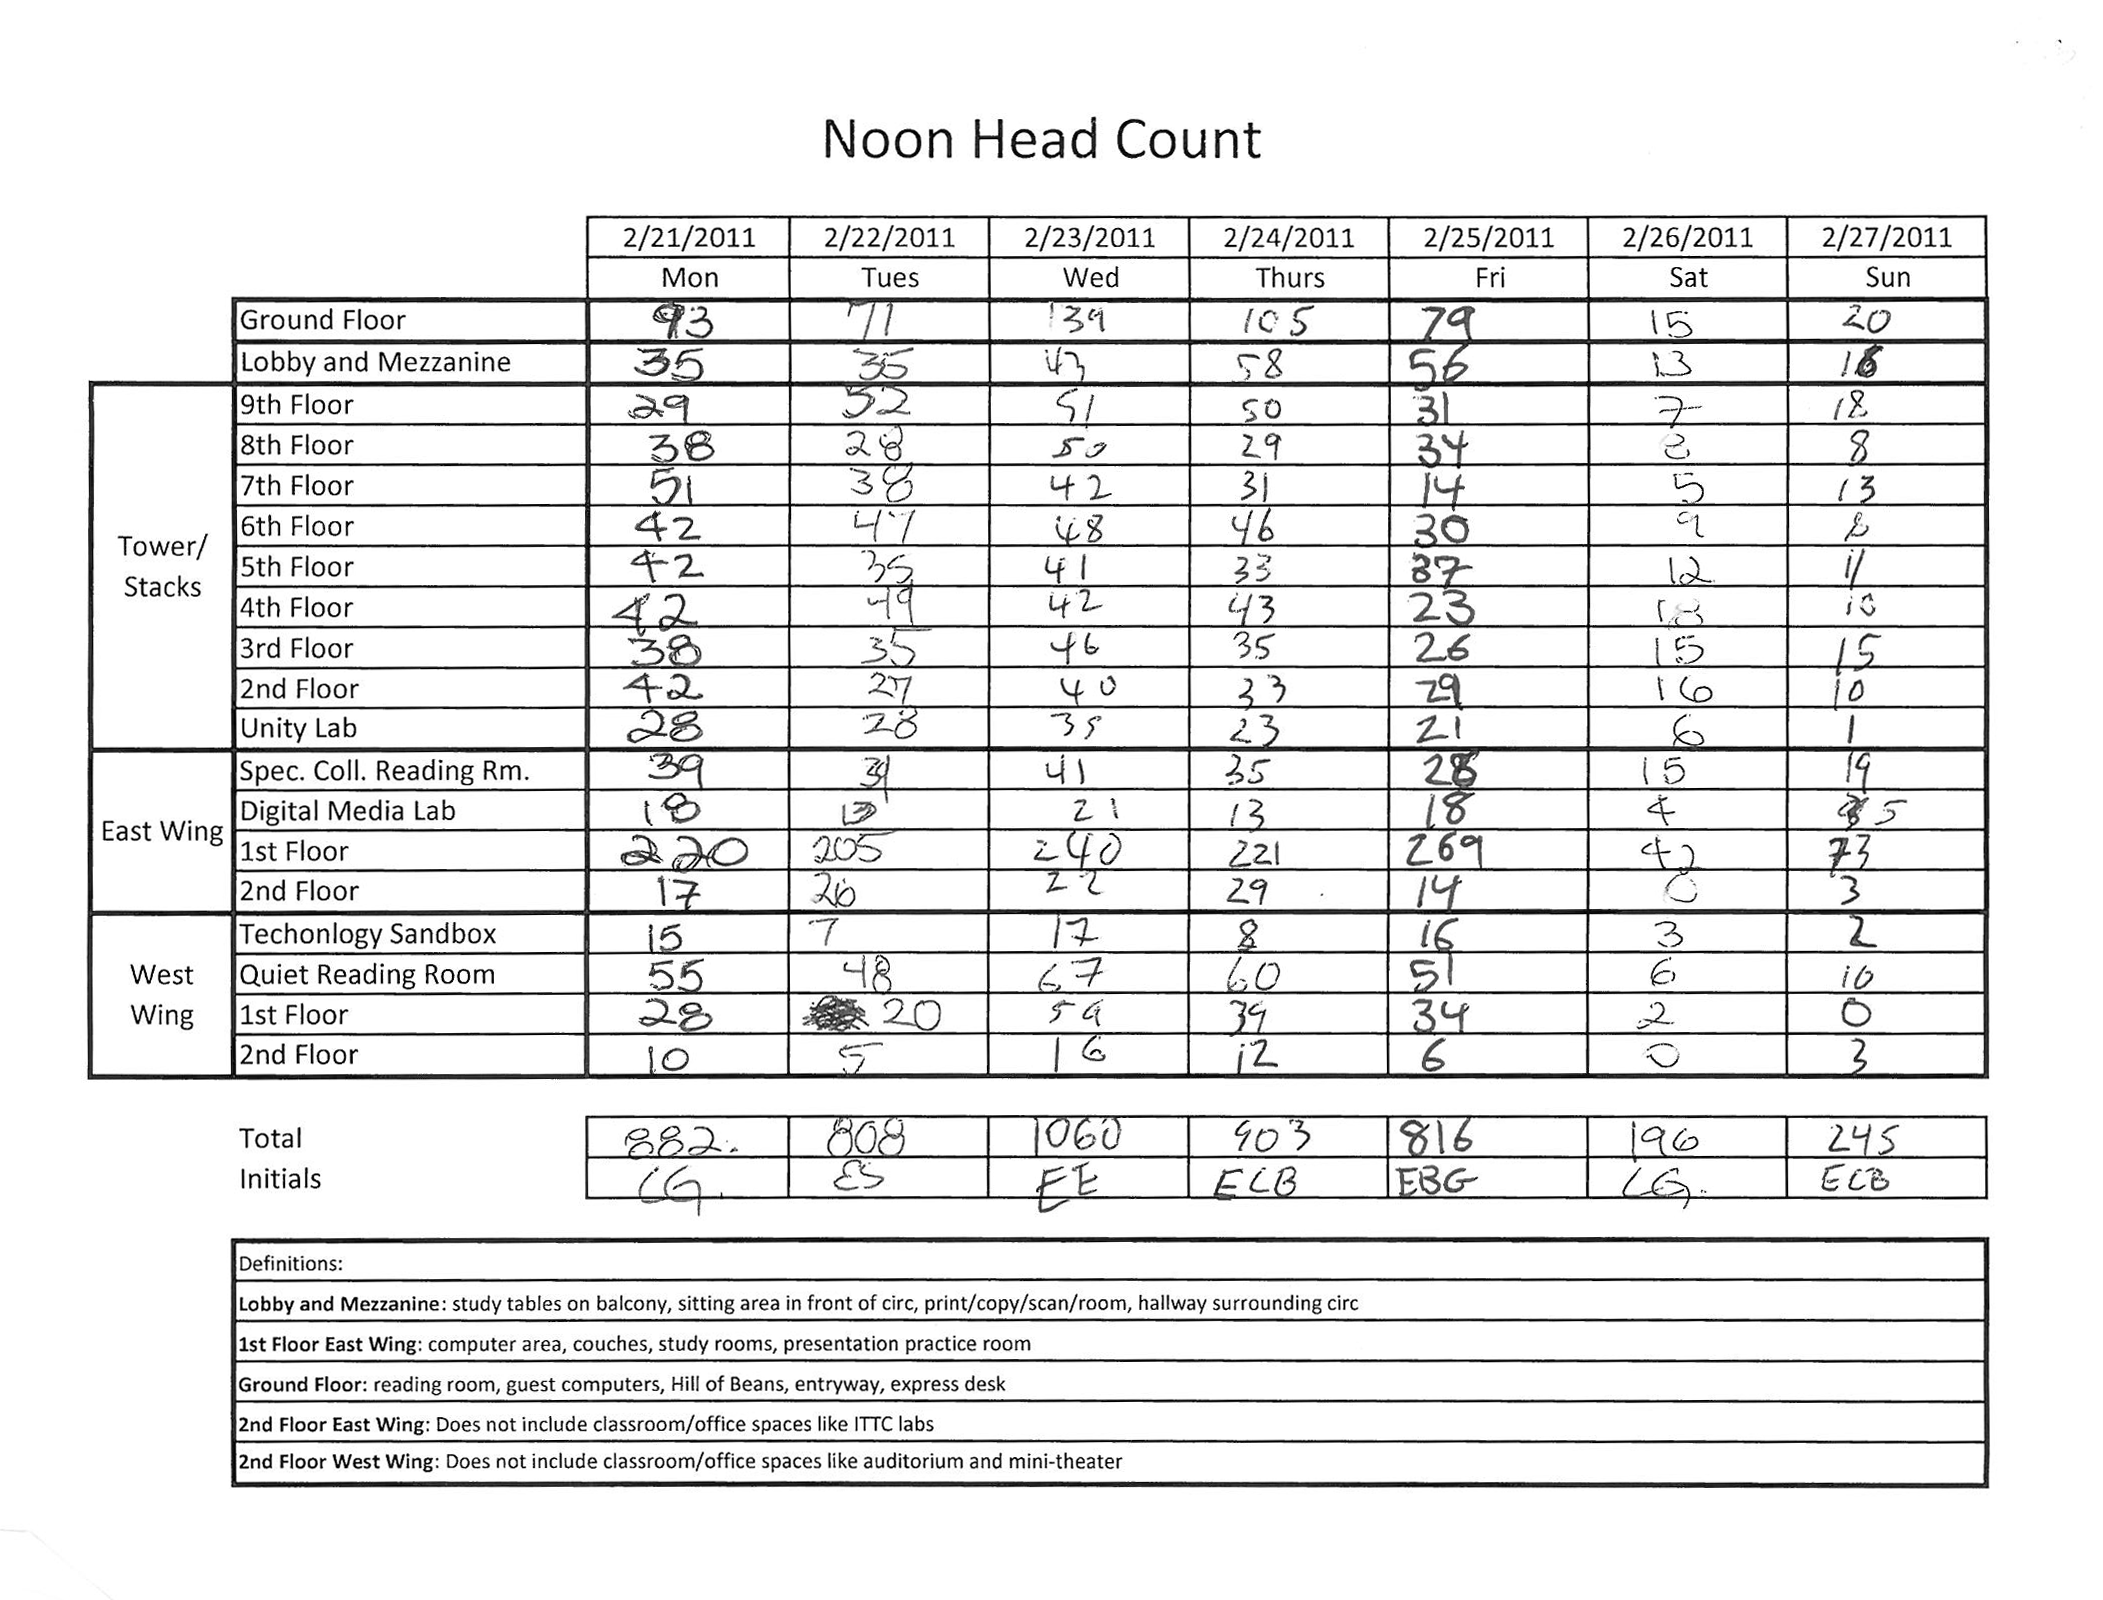 Noon Head Count
2/21/2011 2/22/2011 2/23/2011 2/24/2011 2/25/2011 2/26/2011 2/27/2011
Mon Tues Wed Thurs Fri Sat Sun
Ground Floor 93 71 139 105 79 15 20
Lobby and Mezzanine 35 35 43 58 56 13 16
Tower/ Stacks
9th Floor 29 52 51 50 31 7 18
8th Floor 38 28 50 29 34 8 8
7th Floor 51 38 42 31 14 5 13
6th Floor 42 47 48 46 30 9 8
5th Floor 42 35 41 33 37 12 11
4th Floor 42 49 42 43 23 18 10
3rd Floor 38 35 46 35 26 15 15
2nd Floor 42 27 40 33 29 16 10
Unity Lab 28 28 35 23 21 6 1
East Wing
Spec. Coll. Reading Rm. 39 39 41 35 28 15 19
Digital Media Lab 18 13 21 13 18 4 5
1st Floor 220 205 240 221 269 42 73
2nd Floor 17 26 22 29 14 0 3
West Wing
Techonlogy Sandbox 15 7 17 8 16 3 2
Quiet Reading Room 55 48 67 60 51 6 10
1st Floor 28 20 59 39 34 2 0
2nd Floor 10 5 16 12 6 0 3
Total 882. 808 1060 903 816 196 245
Initials LG. ES EE ECB EBG LG. ECB
Definitions:
Lobby and Mezzanine: study tables on balcony, sitting area in front of circ, print/copy/scan/room, hallway surrounding circ
1st Floor East Wing: computer area, couches, study rooms, presentation practice room
Ground Floor: reading room, guest computers, Hill of Beans, entryway, express desk
2nd Floor East Wing: Does not include classroom/office spaces like ITTC labs
2nd Floor West Wing: Does not include classroom/office spaces like auditorium and mini-theater